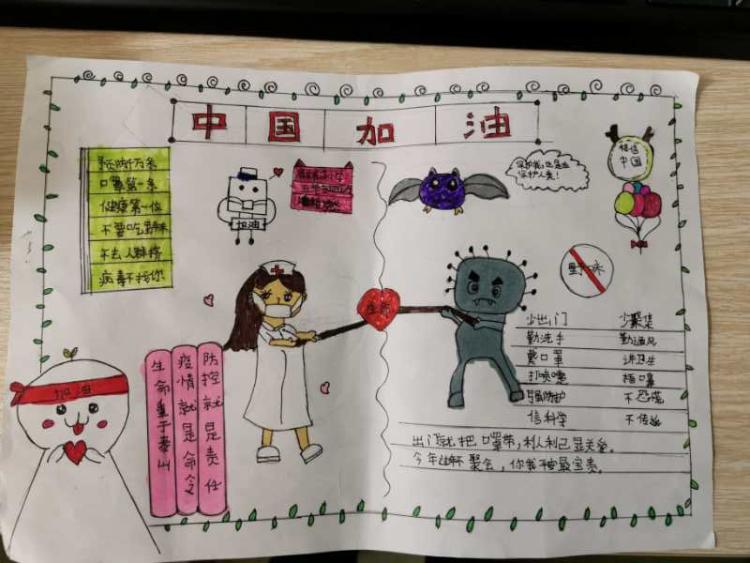 中国加油
口罩第一条
健康第一位
不要吃野味
不去人群挤
病毒不找你
加油
保护我,也是在
保护人类!
相信
中国
野味
生命
少出门 少聚集
勤洗手 勤通风
戴口罩 讲卫生
打喷嚏 捂口鼻
不恐慌
信科学 不传谣
出门就把口罩带,利人利己显关爱。
今年 聚会,你我 最宝贵。
防控就是责任
疫情就是命令
生命重于泰山
加油